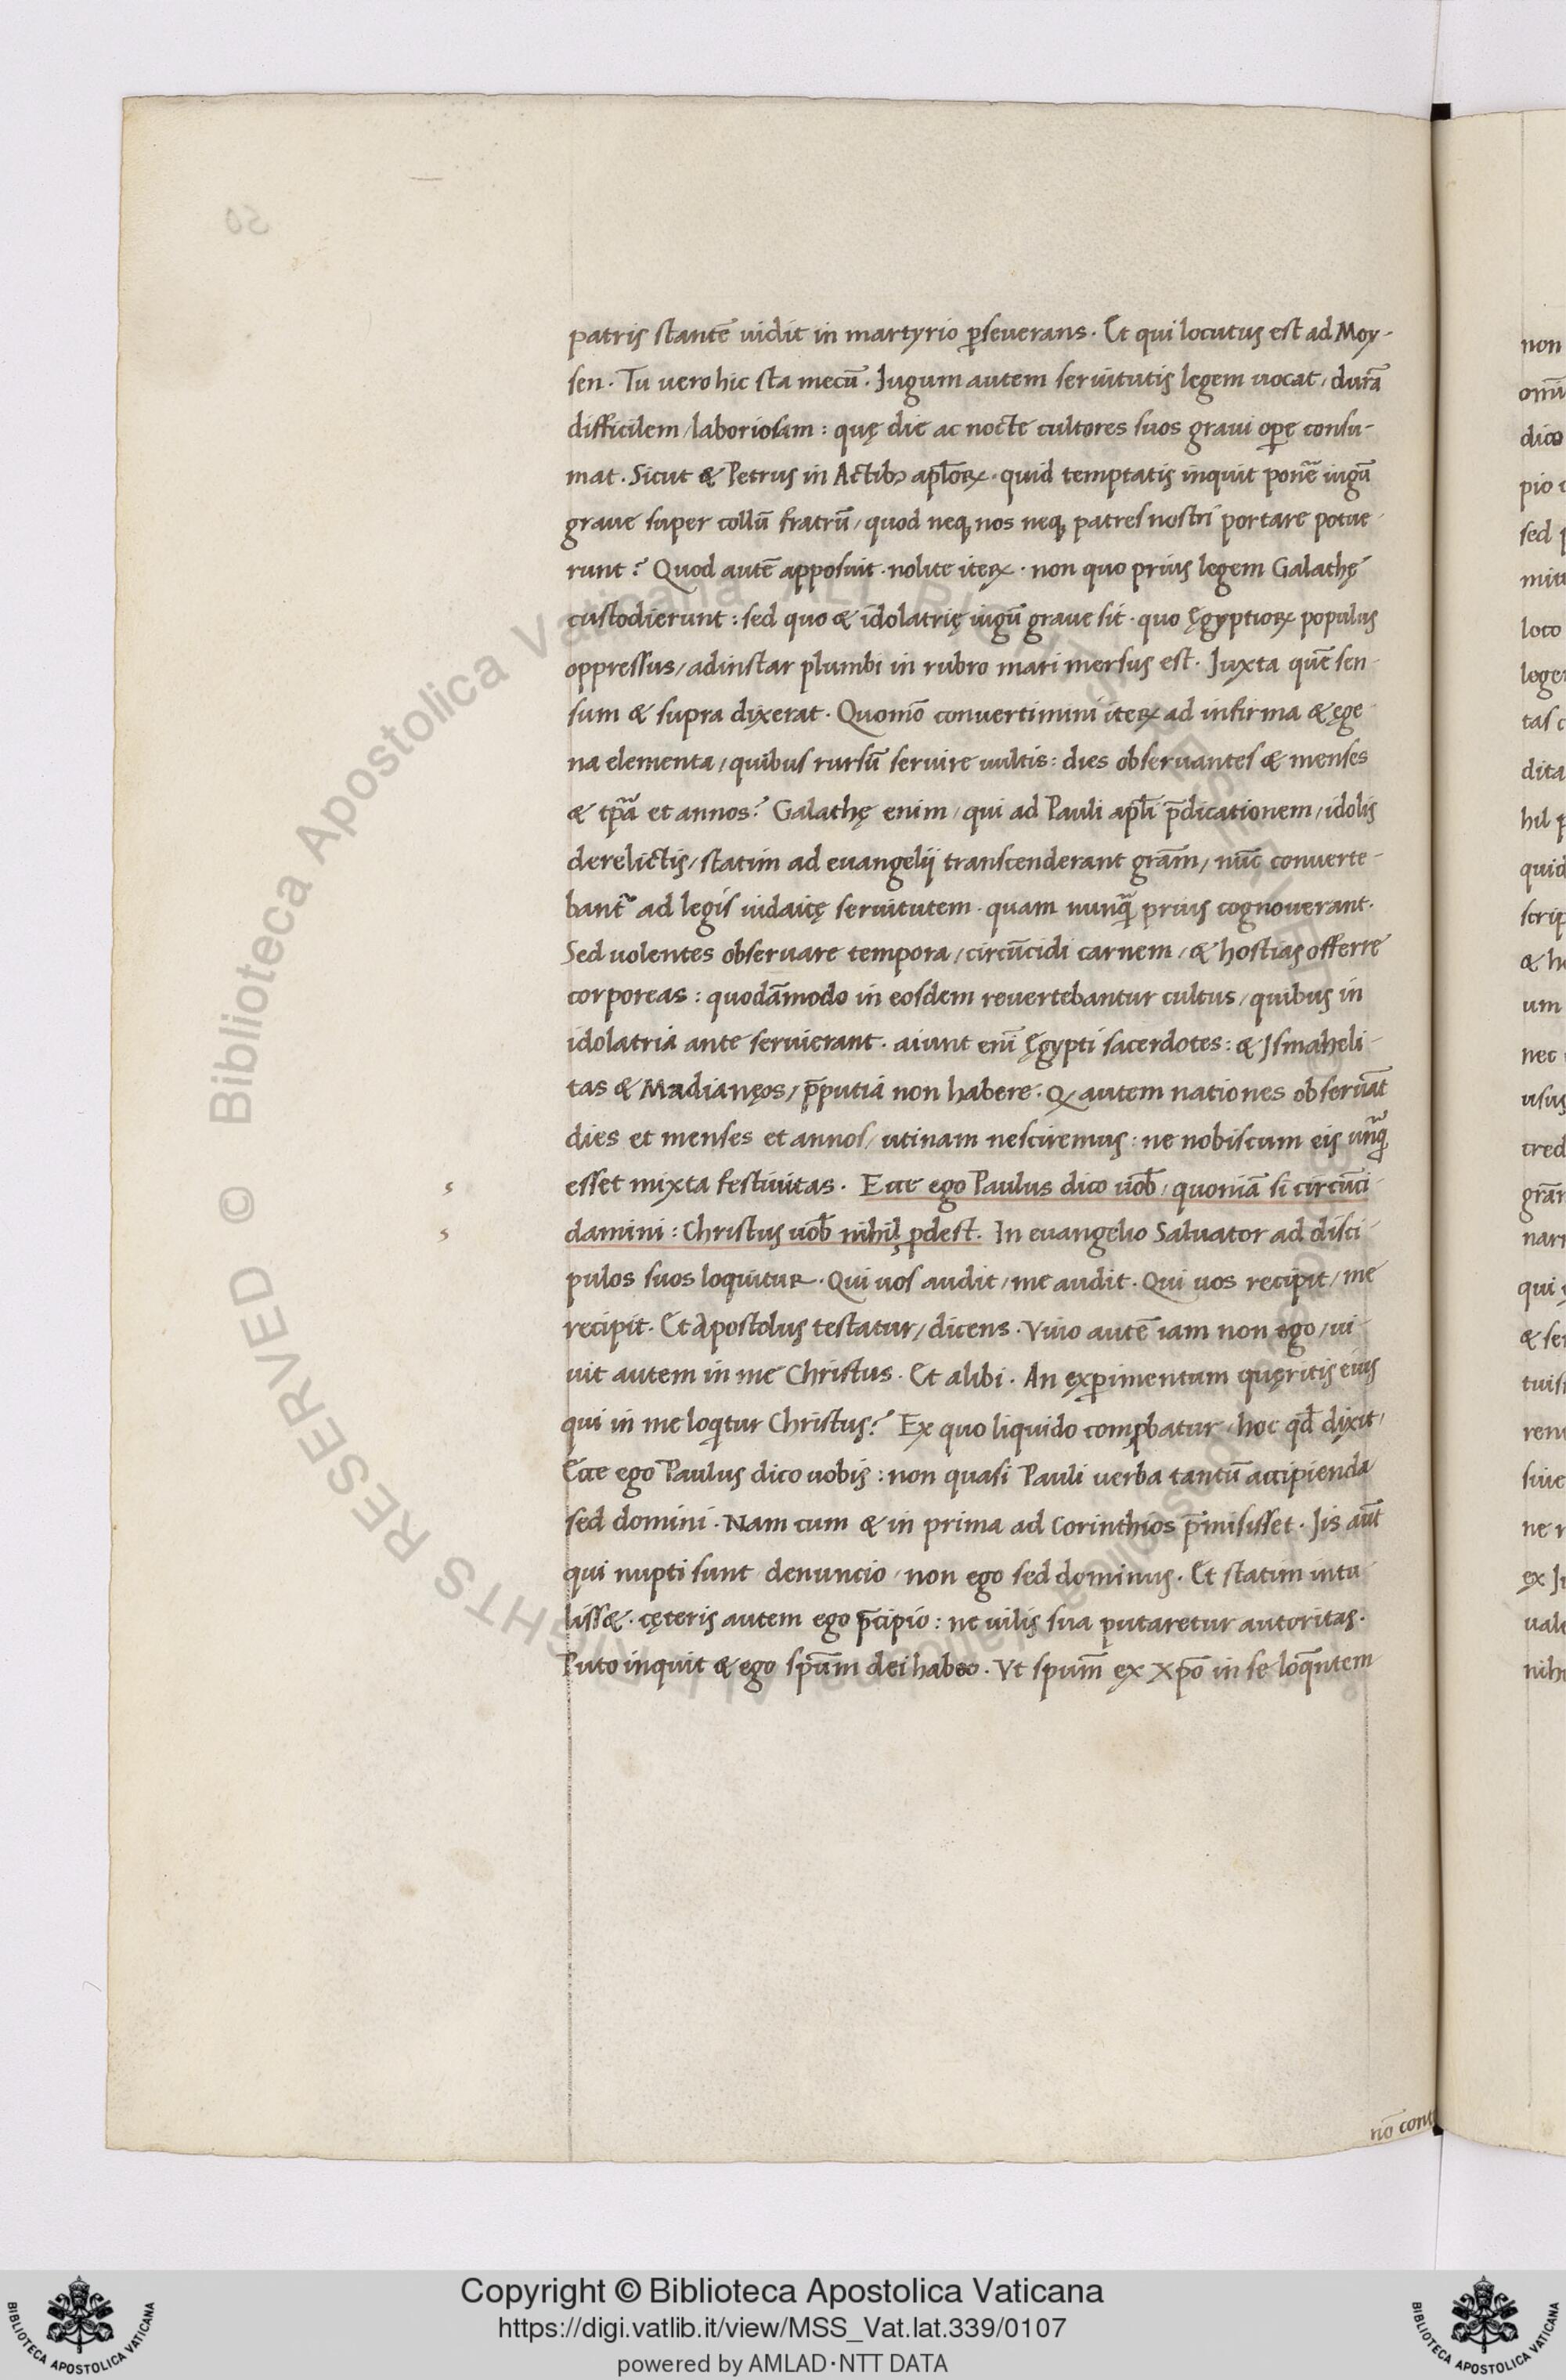 50
patris stantē uidit in martyrio ꝑseuerans. Et qui locutus est ad Moy-
sen. Tu uero hic sta mecū. Jugum autem seruitutis legem uocat, durā
difficilem, laboriosam: quę die ac nocte cultores suos graui oꝑe consu-
mat. Sicut & Petrus in Actibꝰ apl̄oꝝ. quid temptatis inquit ponē̄ iugū
graue super collū fratrū, quod neqꝫ nos neqꝫ patres nostri portare potue-
runt? Quod autē apposuit. nolite iteꝝ. non quo prius legem Galathę
custodierunt: sed quo & idolatrię iugū graue sit. quo Ęgyptioꝝ populus
oppressus, adinstar plumbi in rubro mari mersus est. Juxta quē sen-
sum & supra dixerat. Quomō conuertimini iteꝝ ad infirma & ęge-
na elementa, quibus rursū seruire uultis: dies obseruantes & menses
& tp̄a et annos? Galathę enim, qui ad Pauli apl̄i p̄dicationem, idolis
derelictis, statim ad euangelij transcenderant grām, nūc conuerte-
bant᷑ ad legis iudaicę seruitutem. quam nunq̄ prius cognouerant.
Sed uolentes obseruare tempora, circūcidi carnem, & hostias offerre
corporeas: quodāmodo in eosdem reuertebantur cultus, quibus in
idolatria ante seruierant. aiunt enī Ęgypti sacerdotes: & Ismaheli-
tas & Madianęos, p̄putiā non habere. Ꝙ autem nationes obseruāt
dies et menses et annos, utinam nesciremus: ne nobiscum eis unq̄
esset mixta festiuitas. Ecce ego Paulus dico uob̄, quoniā si circūci-
damini: Christus uob̄ nihil ꝓdest. In euangelio Saluator ad disci-
pulos suos loquitur. Qui uos audit, me audit. Qui uos recipit, me
recipit. Et Apostolus testatur, dicens. Viuo autē iam non ego, ui-
uit autem in me Christus. Et alibi. An exꝑimentum quęritis eius
qui in me loqͥtur Christus? Ex quo liquido comꝓbatur, hoc qd̄ dixit,
Ecce ego Paulus dico uobis: non quasi Pauli uerba tantū accipienda
sed domini. Nam cum & in prima ad Corinthios p̄misisset. Jis aūt
qui nupti sunt denuncio, non ego sed dominus. Et statim intu-
liss&. cęteris autem ego p̄cipio: ne uilis sua putaretur autoritas.
Puto inquit & ego spūm dei habeo. Vt spūm ex xp̄o in se loq̄ntem
nō cont
Copyright © Biblioteca Apostolica Vaticana
https://digi.vatlib.it/view/MSS_Vat.lat.339/0107
powered by AMLAD·NTT DATA